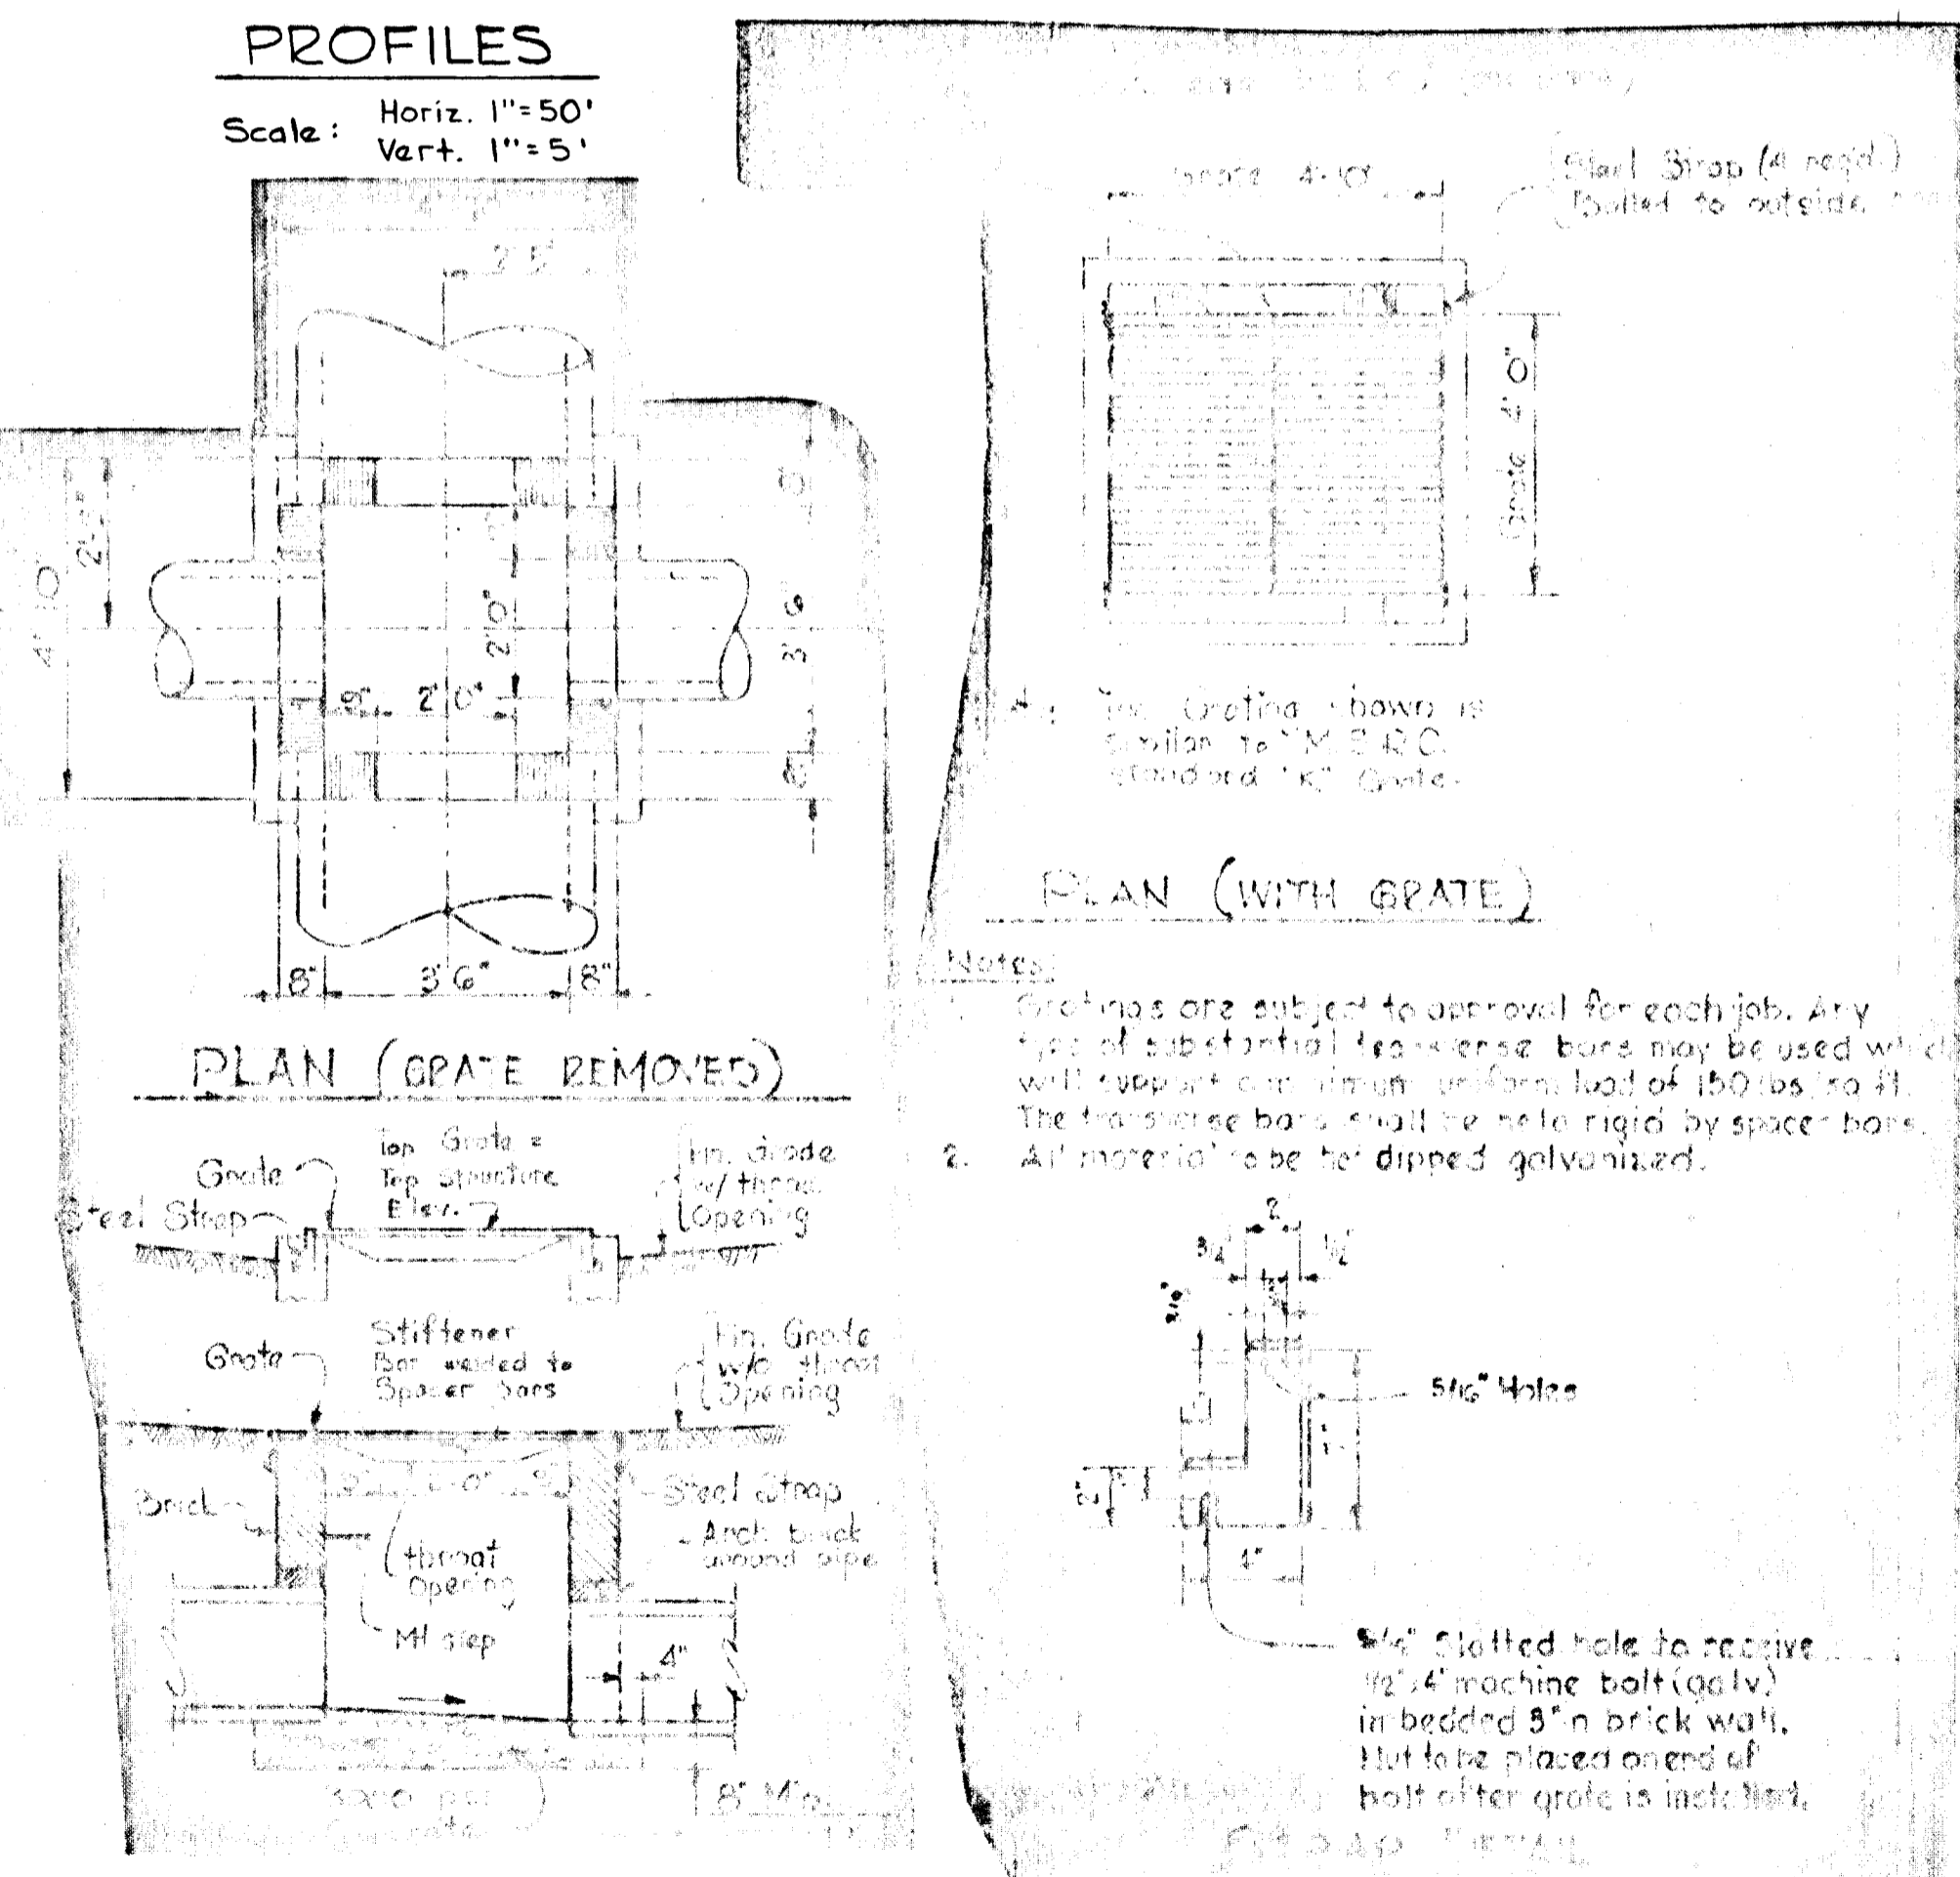 PROFILES
Scale: Horiz. 1"=50'
Vert. 1"=5'
2'5"
4' 10"
2'-5"
8"
3' 6"
8"
2'0"
9" 2'0"
8" 3'6" 8"
PLAN (GRATE REMOVED)
Grate
Top Grate =
Top Structure
Elev.
Fin. Grade
w/ throat
Opening
Steel Strap
Grate
Stiftener
Bar welded to
Spacer bars
Fin. Grade
w/o throat
Opening
Brick
throat
Opening
MH step
Steel Strap
Arch brick
around pipe
4"
8" Min.
Concrete
Grate 4'-10"
Steel Strap (4 reqd.)
Bolted to outside
Grate 4' 0"
Grating shown is
similar to
standard "K" Grate.
PLAN (WITH GRATE)
Notes:
1. Gratings are subject to approval for each job. Any
type of substantial transverse bars may be used which
will support a minimum uniform load of 150 lbs/sq ft.
The transverse bars shall be held rigid by spacer bars.
2. All material to be hot dipped galvanized.
2"
3/4" 1/2"
5/16" Holes
4"
Slotted hole to receive
1/2"x4" machine bolt (galv.)
imbedded 3" in brick wall.
Nut to be placed on end of
bolt after grate is installed.
STRAP DETAIL